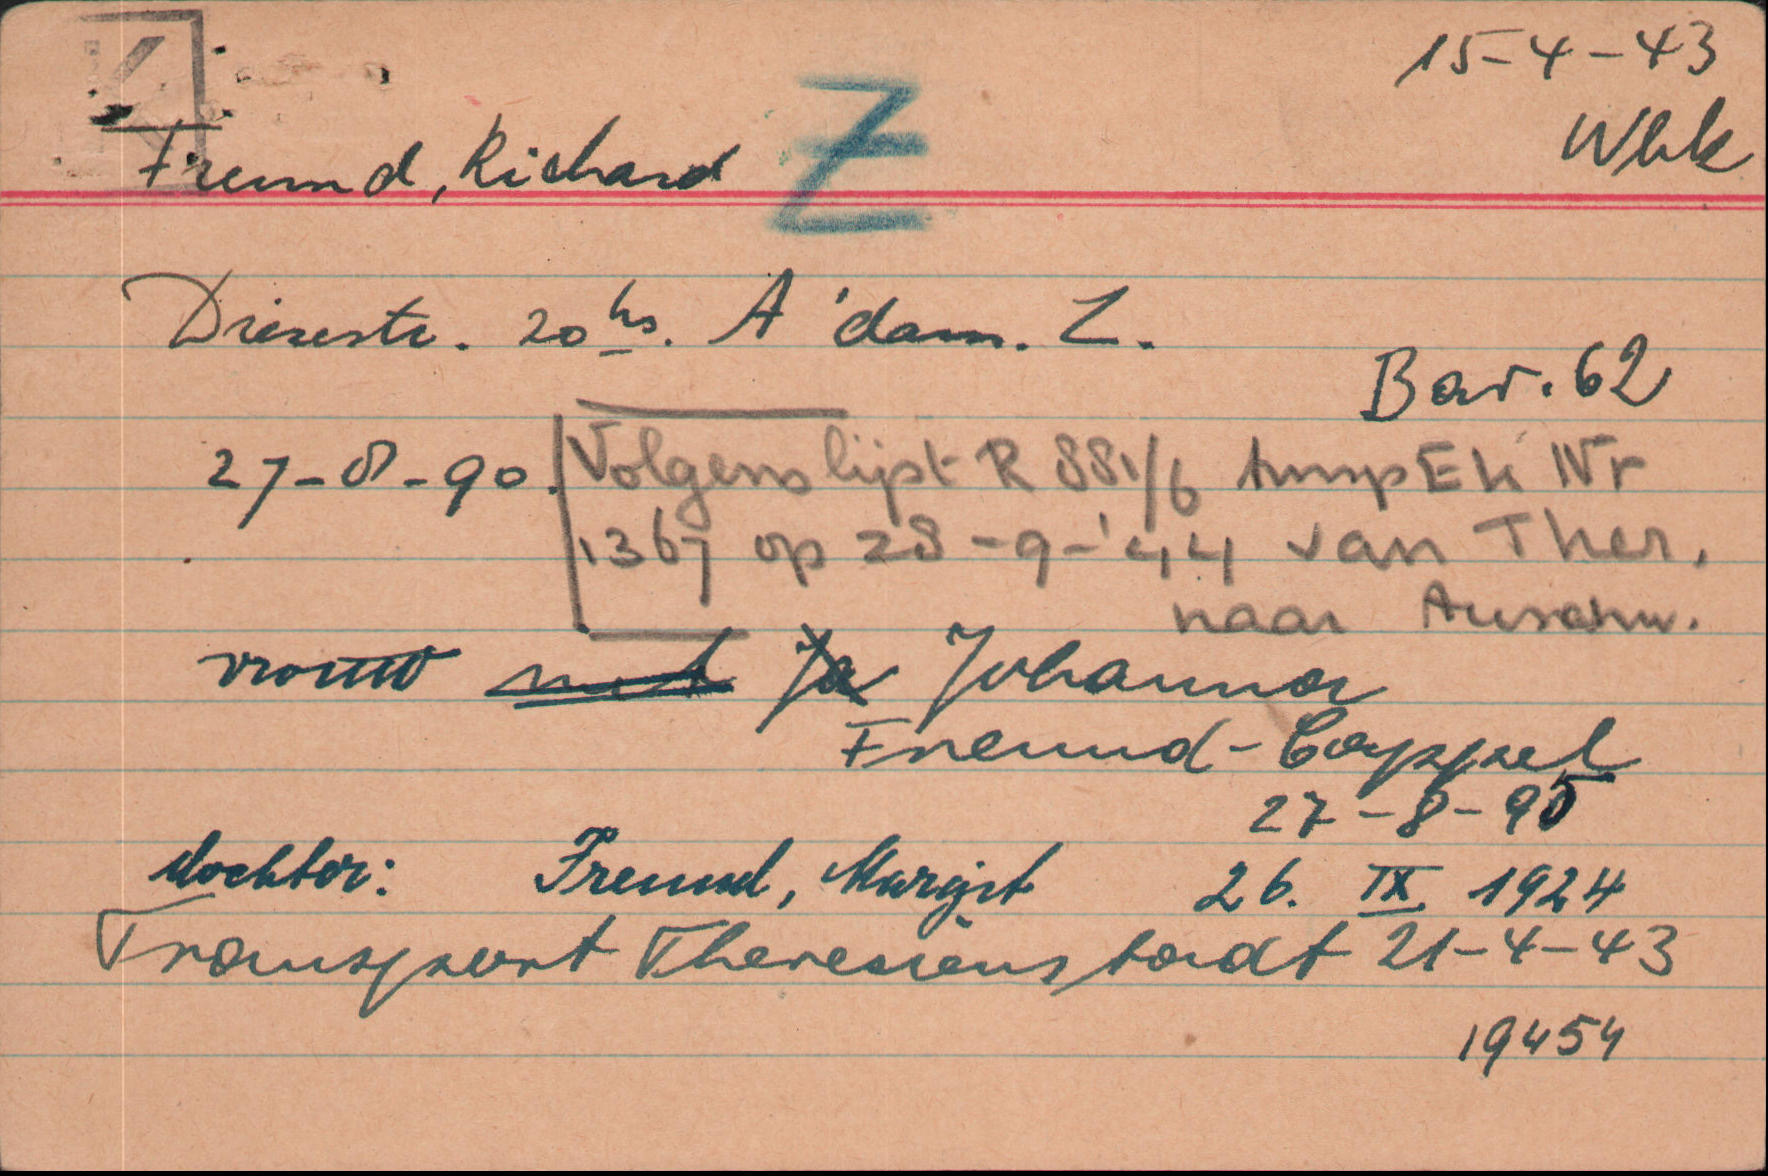 15-4-43
Wbk
Freund, Richard
Z
Diezestr. 20 hs. A'dam. Z.
Bar. 62
27-8-90.
Volgens lijst R 881/6 transp Ek Nr
1367 op 28-9-'44 van Ther.
naar Auschw.
vrouw Ja Johanna
Freund-Coppel
27-8-95
dochter: Freund, Margit 26. IX 1924
Transport Theresienstadt 21-4-43
19454